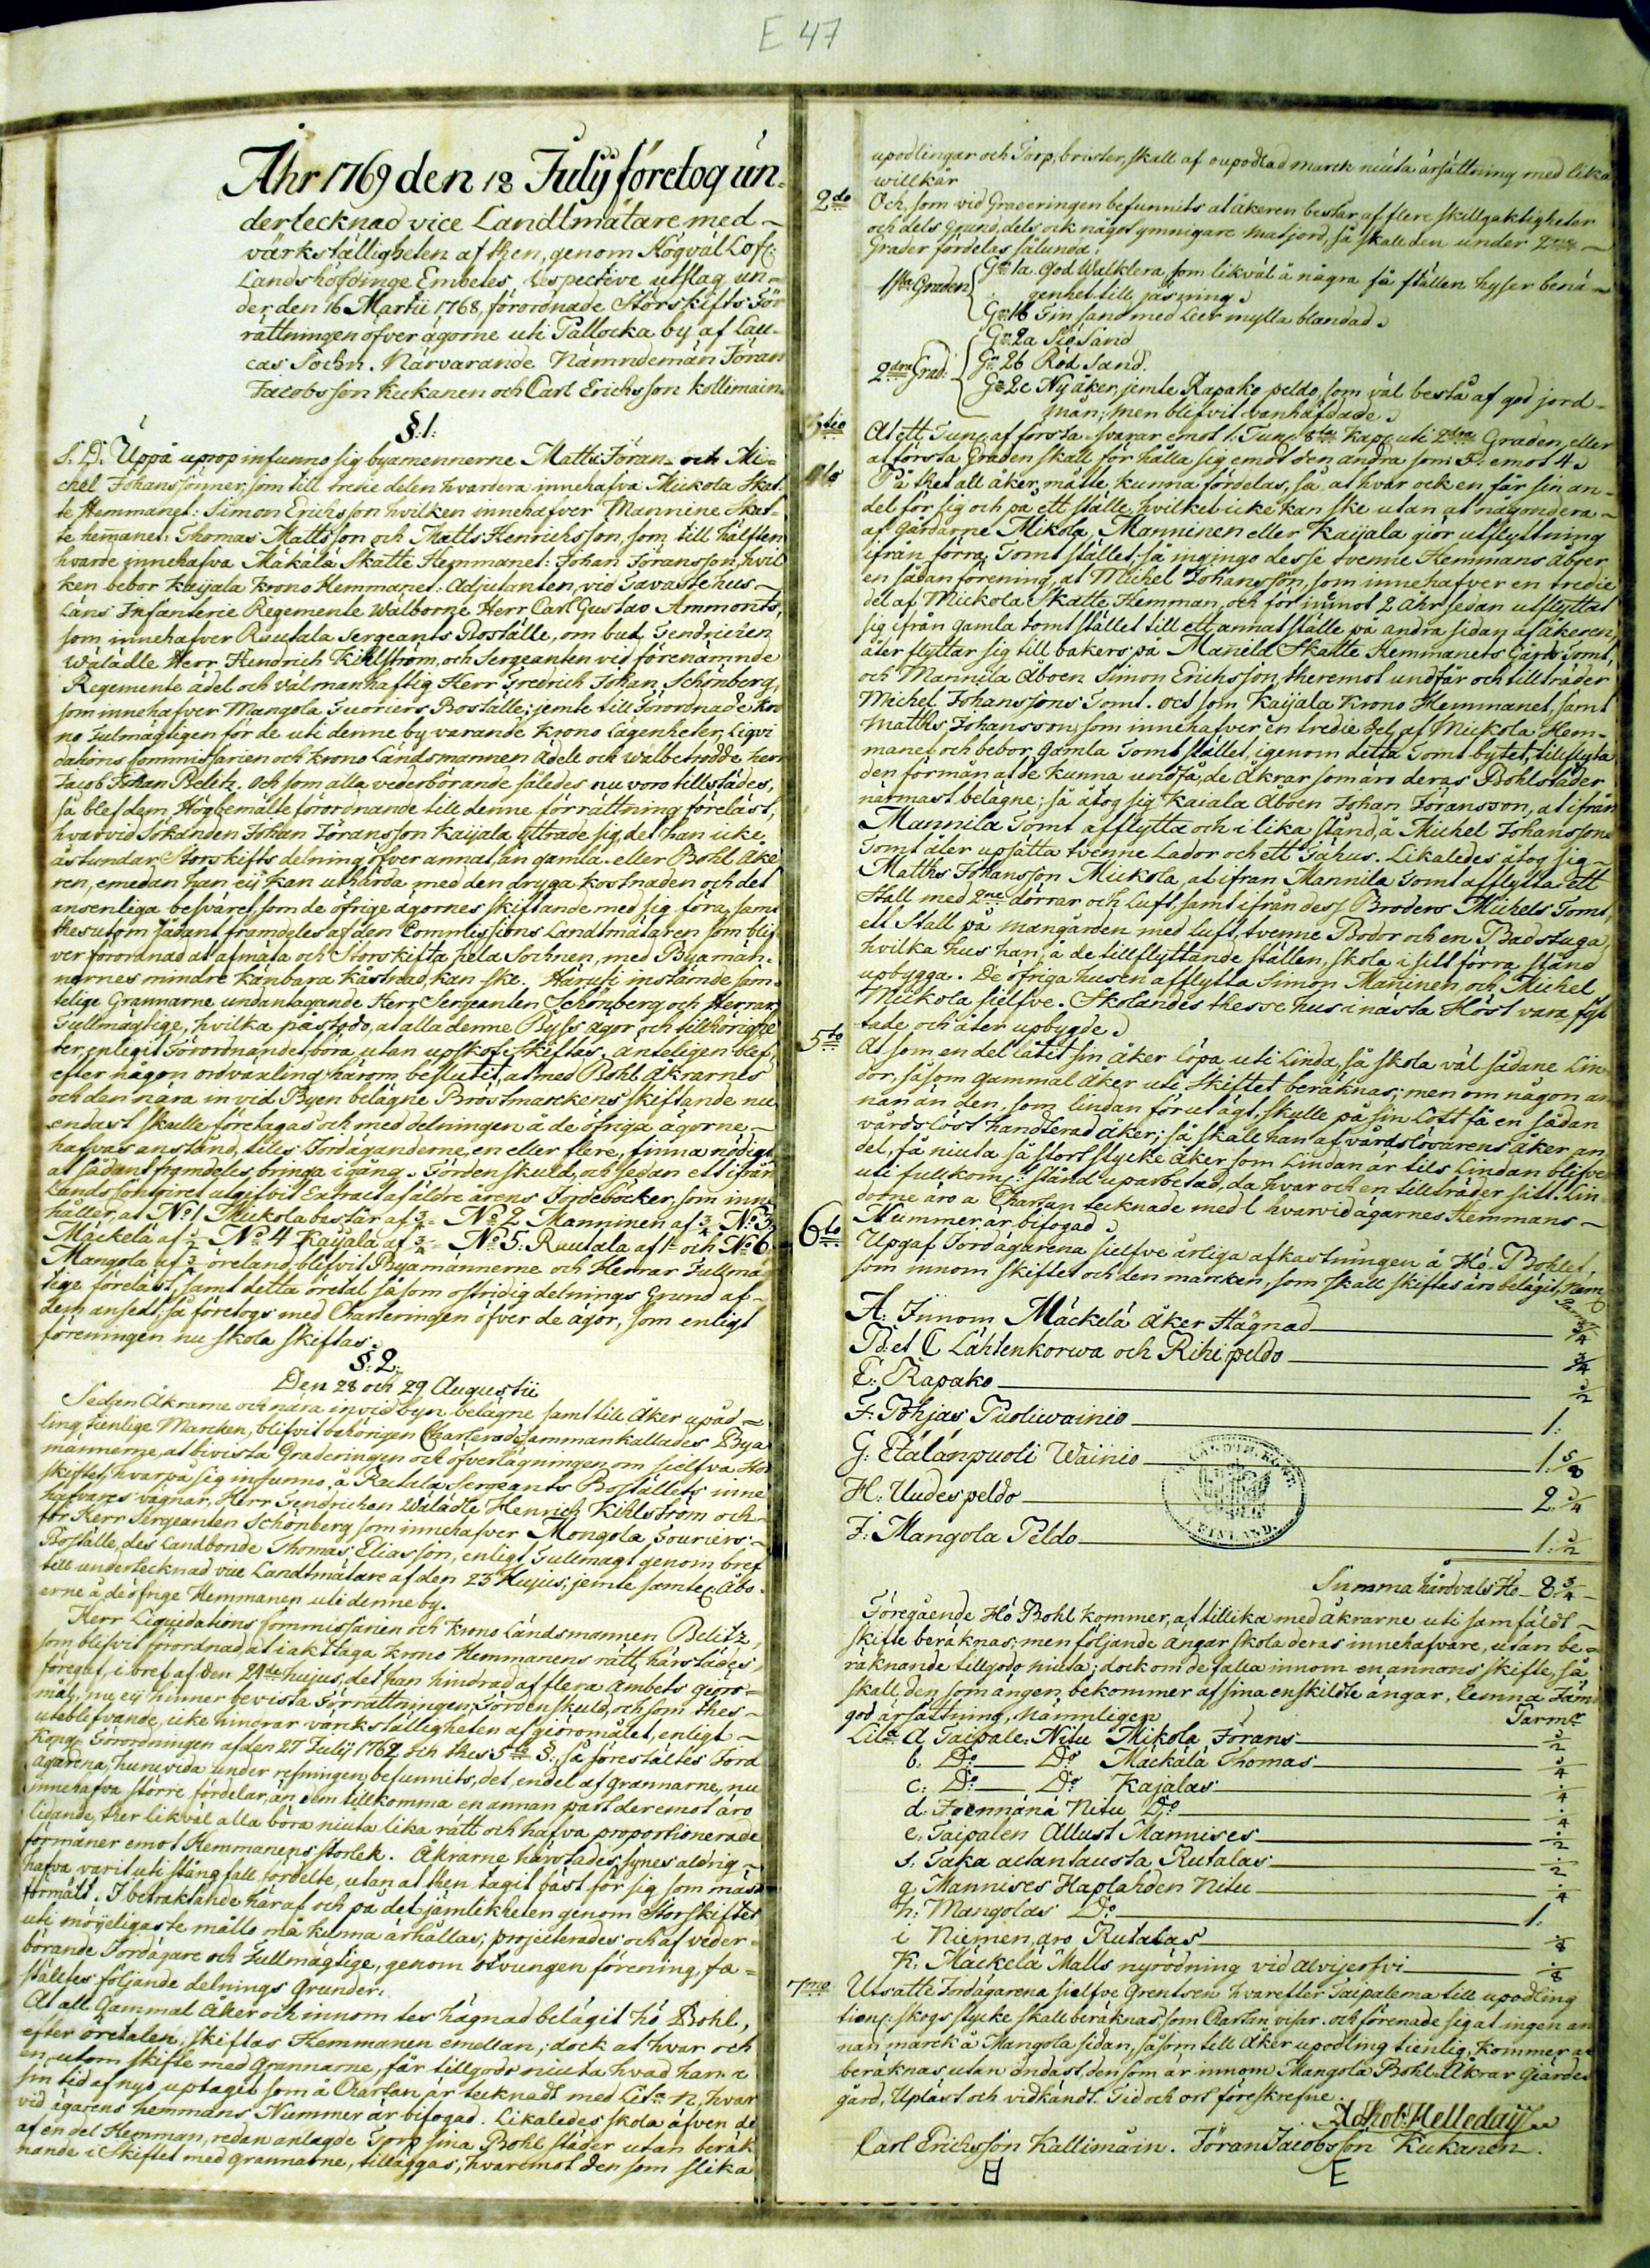 E 47
Åhr 1769 den 18 Julij företog un-
dertecknad vice Landtmätare med
värkställigheten af then, genom Högväl Lofl:
Landshöfdinge Embetes respective utslag un-
der den 16 Martii 1768, förordnade Storskifts För
rättningen öfver ägorne uti Pallocka by af Lau-
cas Sochn. Närvarande Nämndemän Jöran
Jacobsson Kukanen och Carl Erichsson Kollimain.
§. 1.
S. D. Uppå uprop infunno sig byamennerne Matts Jöran- och Mi-
chel Johanssönner, som till tredie delen hvardera innehafva Mickola Skat-
te Hemmanet: Simon Erichsson hvilken innehafver Mannine Skat-
te hemanet: Thomas Mattsson och Matts Henrichsson, som till hälften
hvarde innehafva Mäkälä Skatte Hemmanet: Johan Jöransson, hvil
ken bebor Kaijala Krono Hemmanet: Adjutanten, vid Tavastehus-
Läns Infanterie Regemente Wälborne Herr Carl Gustav Ammonts,
som innehafver Rautala Sergeants Boställe, om bud, Fendrichen
Wälädle Herr Hendrich Kihlström, och Sergeanten vid förenämnde
Regemente ädel och välmanhaftig Herr Fredrich Johan Schönberg,
som innehafver Mangola Fuoriers Boställe; jemte till Förordnade Kro
no Fulmägtigen för de uti denne by varande Krono Lägenheter, Liqvi
dations Commissarien och Krono Ländsmannen Ädele och Wälbetrodde herr
Jacob Johan Belitz. Och som alla vederbörande således nu voro tillstädes,
så blef dem, Högbemälte förordnande till denne förrättning föreläst,
hvarvid Sökanden Johan Jöransson Kaijala yttrade sig, det han icke
åstundar Storskifts delning öfver annat, än gamla eller Bohl Åke
ren, emedan han eij kan uthärda med den dryga kostnaden och det
ansenliga besväret, som de öfrige ägornes skiftande med sig föra, samt
thesutom sådant framdeles af den Commissions Landtmätaren som bli
ver förordnad at afmäta och Storskifta hela Sochnen, med Byamän-
nernes mindre känbara kåstnad, kan ske. Häruti instämde sam-
telige Grannarne undantagande Herr Sergeanten Schönberg och Herrar
Fullmägtige, hvilka påstodo, at alla denne Byss ägor och tillhörighe
ter, enligit Förordnandet, böra utan upskof skiftas. Änteligen blef,
efter någon ordväxling härom beslutit, at med Bohl Åkrarnes
och den nära in vid Byen belägne Brovtmarckens skiftande nu
endast skulle företagas och med delningen å de öfriga ägorne
hafvas anstånd, tills Jordäganderne, en eller flere, finna nödigt
at sådant framdeles bringa i gång. Fördenskuld, och sedan ett ifrån
Lands Contoiret utgifvit Extract af äldre årens Jordeböcker, som inne
håller, at No 1 Mickola består af 3/4 No 2 Manninen af 3/4 No 3
Mäckelä af 1/2 No 4 Kaijala af 3/4 No 5. Rautala af 1 och No 6
Mangola af 3/4 öreland, blifvit Byamännerne och Herrar Fullmäg
tige föreläst, samt detta öretal såsom ostridig delnings Grund af
dem ansedt; så företogs med Charteringen öfver de ägor, som enligt
föreningen nu skola skiftas.
§. 2.
Den 28 och 29 Augustii
Sedan Åkrarne och nära in vid byn belägne samt till Åker upåd
ling tienlige Marcken, blifvit behörigen Charterade, sammankallades Bya
männerne, at bivista Graderingen och öfverlägningen om sielfva Stor
skiftet, hvarpå sig infunno, å Rutala Sergeants Boställets inne
hafvares vägnar, Herr Fendrichen Wälädle Henrich Kihlström och
för Herr Sergeanten Schönberg som innehafver Mongola Fouriers
Boställe, des Landbonde Thomas Eliasson, enligt Fullmagt genom bref
till undertecknad vice Landtmätare af den 23 Hujus; jemte samtel: Åbo-
erne å de öfrige Hemmanen uti denne by.
Herr Liquidations Commissarien och Krono Ländsmannen Belitz,
som blifvit förordnad, at i akttaga Krono Hemmanens rätt, härstädes,
föregaf, i bref af den 29de hujus, det han hindrad af flera ämbets giöro-
mål, nu eij hinner bevista Förrättningen; Fördenskuld, och som thes
uteblifvande, icke hindrar värkställigheten af giöromålet, enligt
Kongl. Förordningen af den 27 Julij 1762 och thes 5te §; så föreställtes Jord
ägarena, huruvida under refningen befunnits, det, en del af grannarne, nu
innehafva större fördelar, än dem tillkomma en annan part deremot äro
lidande, ther likväl alla böra niuta lika rätt och hafva proportionerade
förmåner emot Hemmanens storlek. Åkrarne härstädes, synes aldrig
hafva varit uti stång fall fördelte, utan at then tagit bäst för sig som mäst
förmått. I betraktande häraf och på det jämlikheten genom Storskiftet
uti möijeligaste måtto må kunna ärhållas; projecterades och af veder-
börande Jordägare och Fullmägtige, genom otvungen förening, fa-
stältes följande delnings Grunder.
At all Gammal Åker och innom tes hägnad belägit Hö Bohl,
efter öretalen, skiftas Hemmanen emellan; dock at hvar och
en, utom skifte med Grannarne, får tillgodo niuta hvad han i
sin tid af nyo uptagit som å Chartan är tecknadt med Lita n, hvar
vid ägarens hemmans Nummer är bifogad. Likaledes skola äfven de
af en del Hemman, redan anlagde Torp sina Bohl städer utan beräk
nande i Skiftet med grannarne, tilläggas, hvaremot den som slika
upodlingar och Torp, brister, skall af oupodlad marck niuta ärsättning med lika
willkår
2do Och, som vid Graderingen befunnits at åkeren består af flere skillgaktigheter
och dels grund, dels ock något ymnigare matjord, så skall den under 2ne
Grader fördelas sålunda.
1sta Graden { Gr: 1a. god Walklera, som likväl å några få ställen hyser benä
genhet till jäsning.
Gr: 1b Fin sand med Leer mylla blandad.
2dra Grad. { Gr: 2a Siö Sand
Gr: 2b Röd Sand.
Gr: 2c Ny åker, jemte Rapako peldo, som väl bestå af god jord-
mån; men blifvit vanhäfdade.
3tio At ett Tunl. af första svarar emot 1. Tunl 8ta Kapl uti 2dra Graden, eller
at första Graden skall för hålla sig emot den andra som 5. emot 4.
4to På thet all åker måtte kunna fördelas, så, at hvar ock en får sin an-
del för sig och på ett ställe, hvilket icke kan ske utan at någondera
af Gårdarne Mikola, Manninen eller Kaijala giör utflyttning
ifrån förra Tomt stället, så ingingo desse tvenne Hemmans åboer
en sådan förening, at Michel Johansson, som innehafver en tredie
del af Mickola Skatte Hemman, och för innot 2 Åhr sedan utflyttat
sig ifrån gamla tomt stället till ett, annat ställe på andra sidan af åkeren,
åter flyttar sig till bakers på Manela Skatte Hemmanets Gårds Tomt,
och Mannila Åboen Simon Erichsson, theremot undfår och tillträder
Michel Johanssons Tomt. Och som Kaijala Krono Hemmanet, samt
Matths Johansson, som innehafver en tredie del af Mickola Hem-
manet och bebor gamla Tomt stället, igenom detta Tomt bytet, tillflyta
den förmån at de kunna undfå, de Åkrar som äro deras Bohlstäder
närmast belägne; så åtog sig Kaiala Åboen Johan Jöransson, at ifrån
Mannila Tomt afflytta och i lika stånd, å Michel Johanssons
Tomt åter upsätta tvenne Lador och ett Fähus. Likaledes åtog sig
Matths Johansson Mickola, at ifrån Mannila Tomt afflytta ett
Stall med 2ne dörrar och luft, samt ifrån dess Broders Michels Tomt,
ett Stall på mangården med luft, tvenne Bodor och en Badstuga,
hvilka hus han, å de tillflyttande ställen, skola i sitt förra stånd
upbygga. De öfriga husen afflytta Simon Maninen och Michel
Mickola sielfve. Skolandes thesse hus i nästa Höst vara flyt
tade och åter upbygde.
5to At som en del låtit sin åker löpa uti Linda, så skola väl sådane Lin
dor, såsom gammal åker uti Skiftet beräknas; men om någon an
nan än den, som lindan förut ägt, skulle på sin Lott få en sådan
vårdslöst handterad åker; så skall han af vårdslösarens åker an
del, få niuta så stort stycke åker som Lindan är tils Lindan blifver
uti fullkoml: stånd uparbetad, da hvar och en tillträder sitt. Lin
dorne äro a Chartan tecknade med l hvarvid ägarnes Hemmans
Nummer är bifogad
6to Upgaf Jordägarena sielfve årliga afkastningen å Hö Bohlet,
som innom skiftet och den marcken, som skall skiftas äro belägit, Näml
A: Jnnom Mäckelä Åker Hägnad 3/4
B: et C Lähtenkorwa och Rihi peldo 3/4
E: Rapako 1/2
F: Pohjas Puoliwainio 1:
G: Etälänpuoli Wainio 1: 5/8
H: Uudes peldo 2. 3/4
J: Mangola Peldo 1: 1/2
Summa hårdvals Hö 8 3/4
Föregående Hö Bohl kommer, at tillika med åkrarne uti samfäldt
skifte beräknas; men följande ängar skola deras innehafvare, utan be-
räknande tillgodo niuta; dock om de falla innom en annans skifte, så
skall, den som ängen bekommer af sina enskildte ängar, lemna Jäm
god ärsättning, Nämnligen
Parmr
Lita: a Taipale: Nitu Mikola Jörans 1/2
b: Do Do Mäckälä Thomas 1/4
c: Do Do Kajalas 1/4
d: Joenmänä Nitu Do 1/4
e: Taipalen Allust Mannises 1/2
f: Taka aitantausta Rutalas 1/2
g Mannises Haplahden Nitu 1/4
h: Mangolas Do 1:
i Niemen aro Rutalas 1/8
K: Mäckelä Matts nyrödning vid Alvijerfvi 1/8
7mo Utsatte Jordägarena sielfve Grentsen hvarefter Taipalema till upodling
tienl: skogs stycke skall beräknas, som Chartan visar. och förenade sig at ingen an
nan marck å Mangola sidan, såsom till Åker upodling tienlig, kommer at
beräknas, utan endast, den som är innom Mangola Bohl Åkrar Giärdes
gård, Upläst och vidkändt. Tid och ort föreskrefne.
Jakob: Melleday
Carl Erichsson Kallimain. Jöran Jacobsson Kukanen.
E
FINLAND